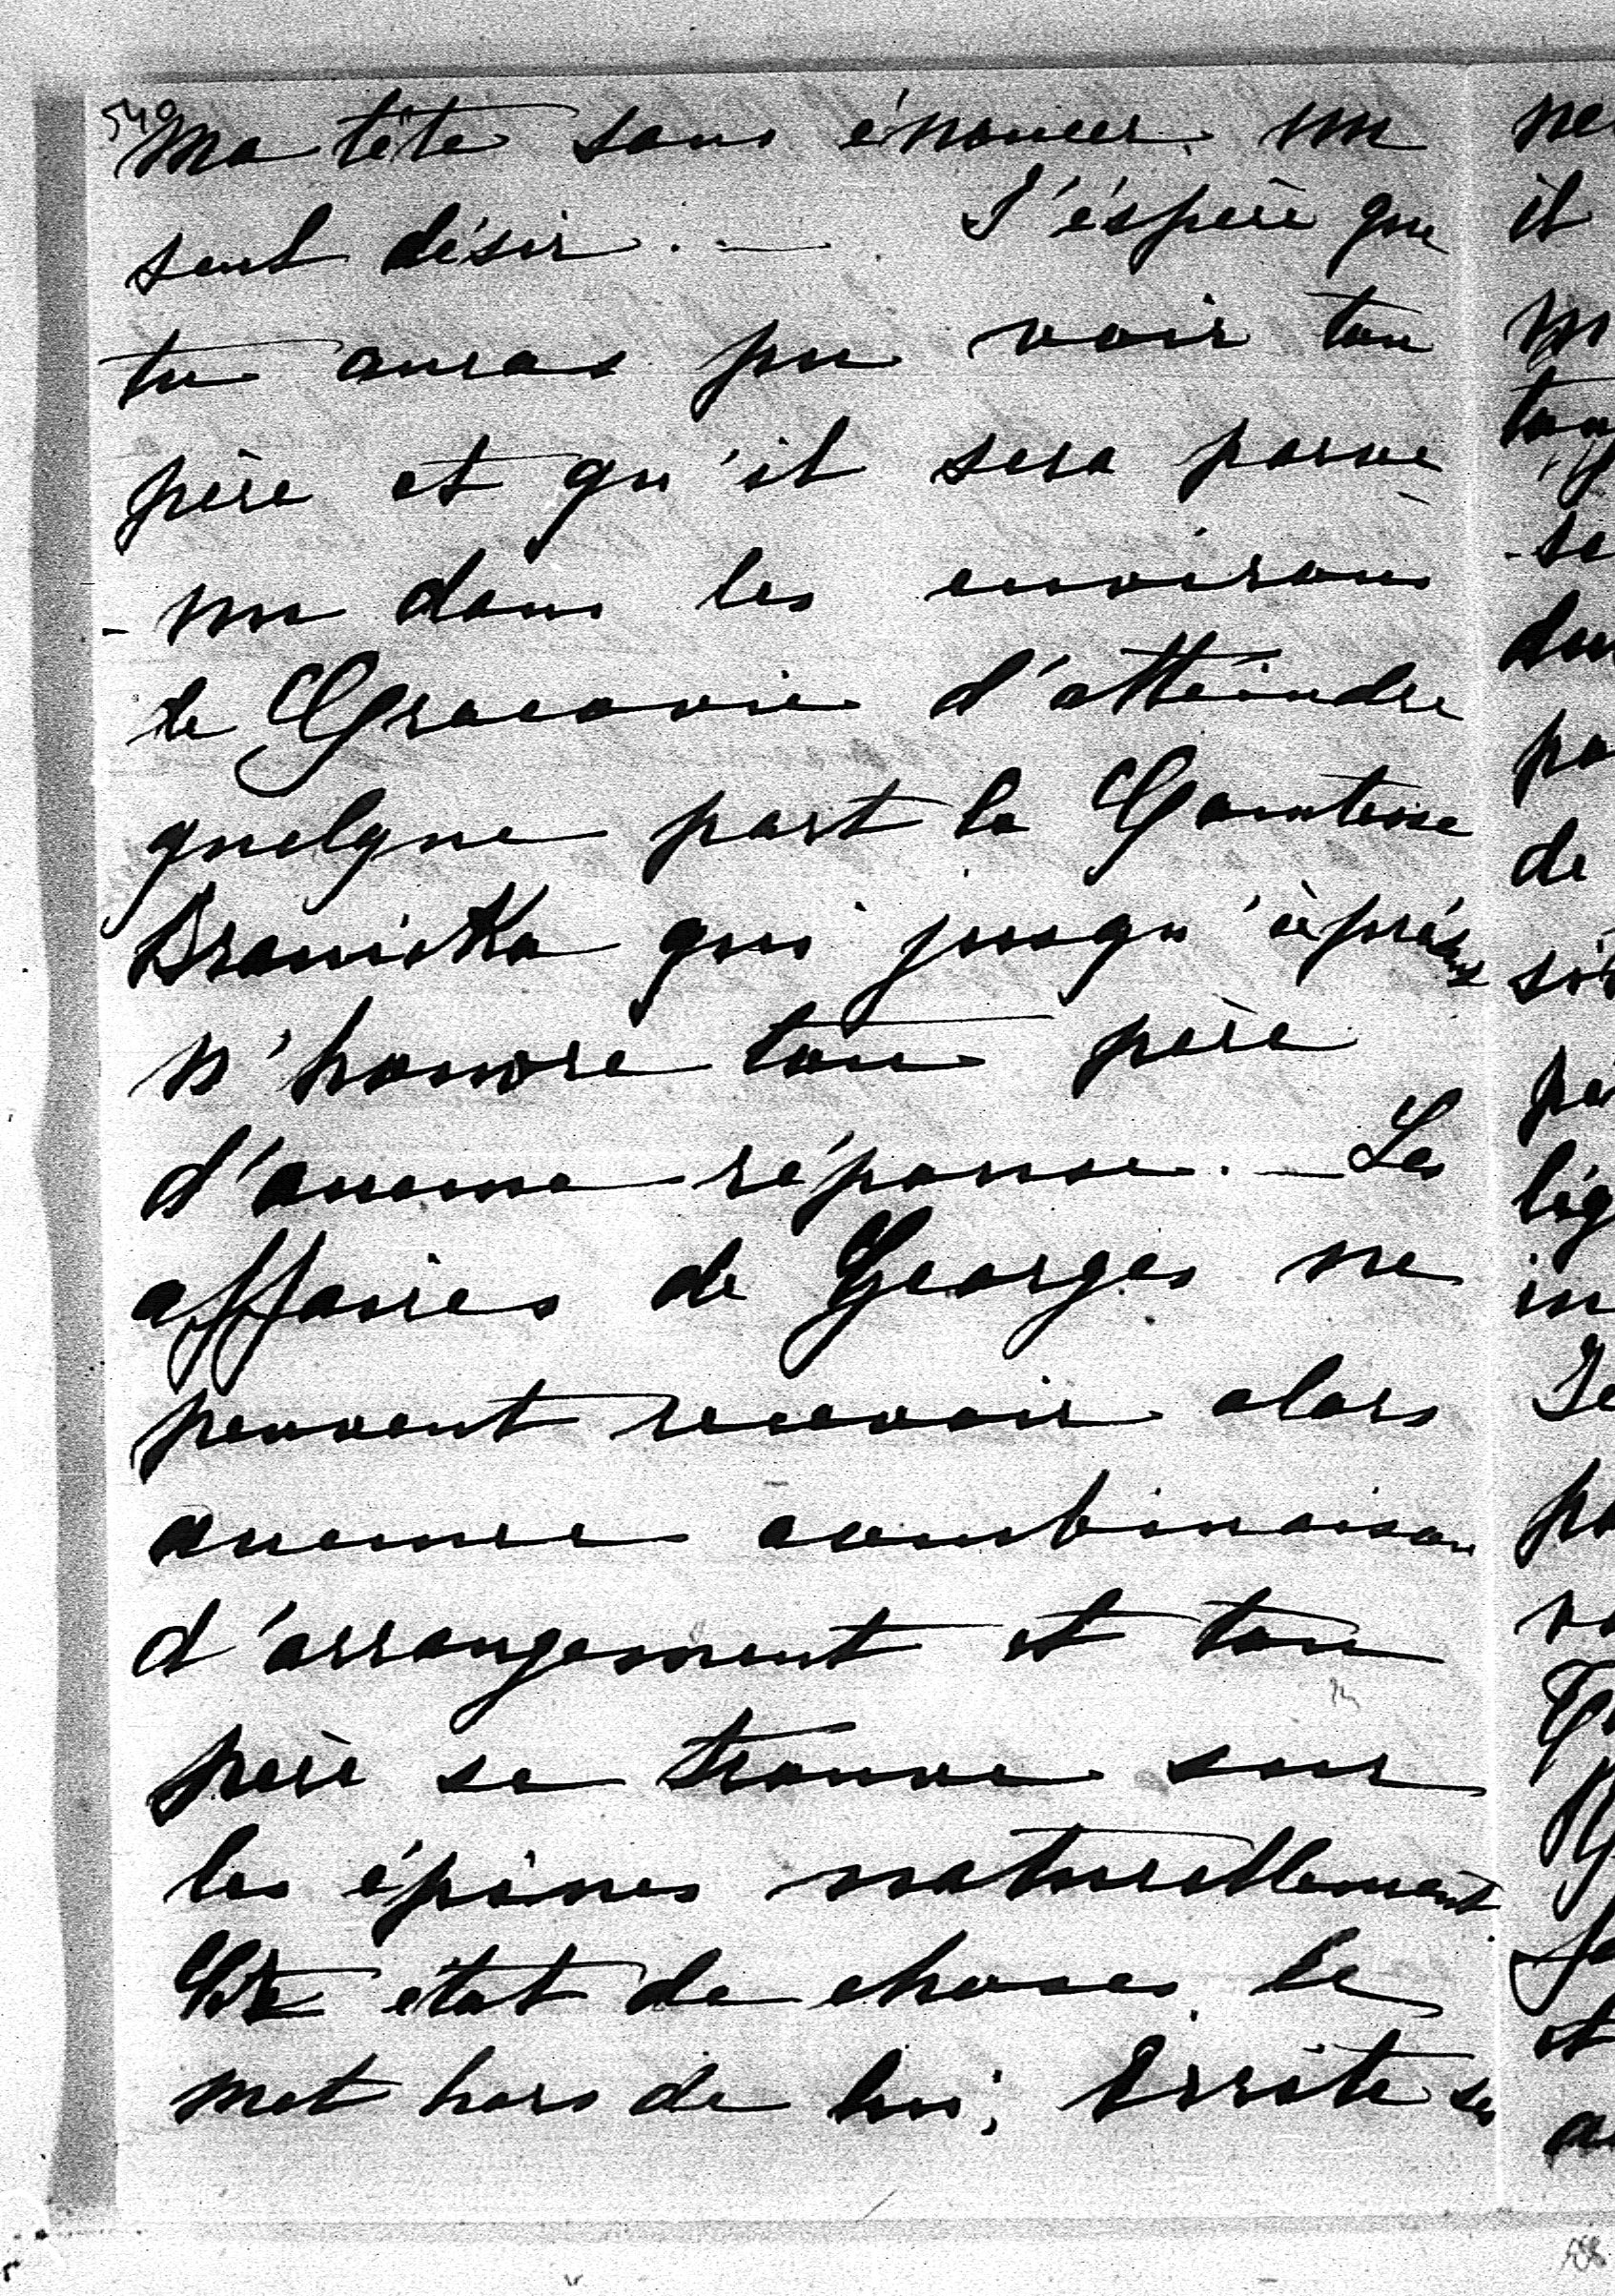 540
ma tête sans énoncer un
seul désir. — J'éspère que
tu auras pu voir ton
père et qu'il sera parve
- nu dans les environs
de Cracovie d'atteindre
quelque part la Comtesse
Branicka qui jusqu'à présent
n'honore ton père
d'aucune réponse. — Les
affaires de Georges ne
peuvent recevoir alors
aucune combinaison
d'arrangement et ton
père se trouve sur
les épines naturellement.
Cet état de choses le
met hors de lui; Irrite ses